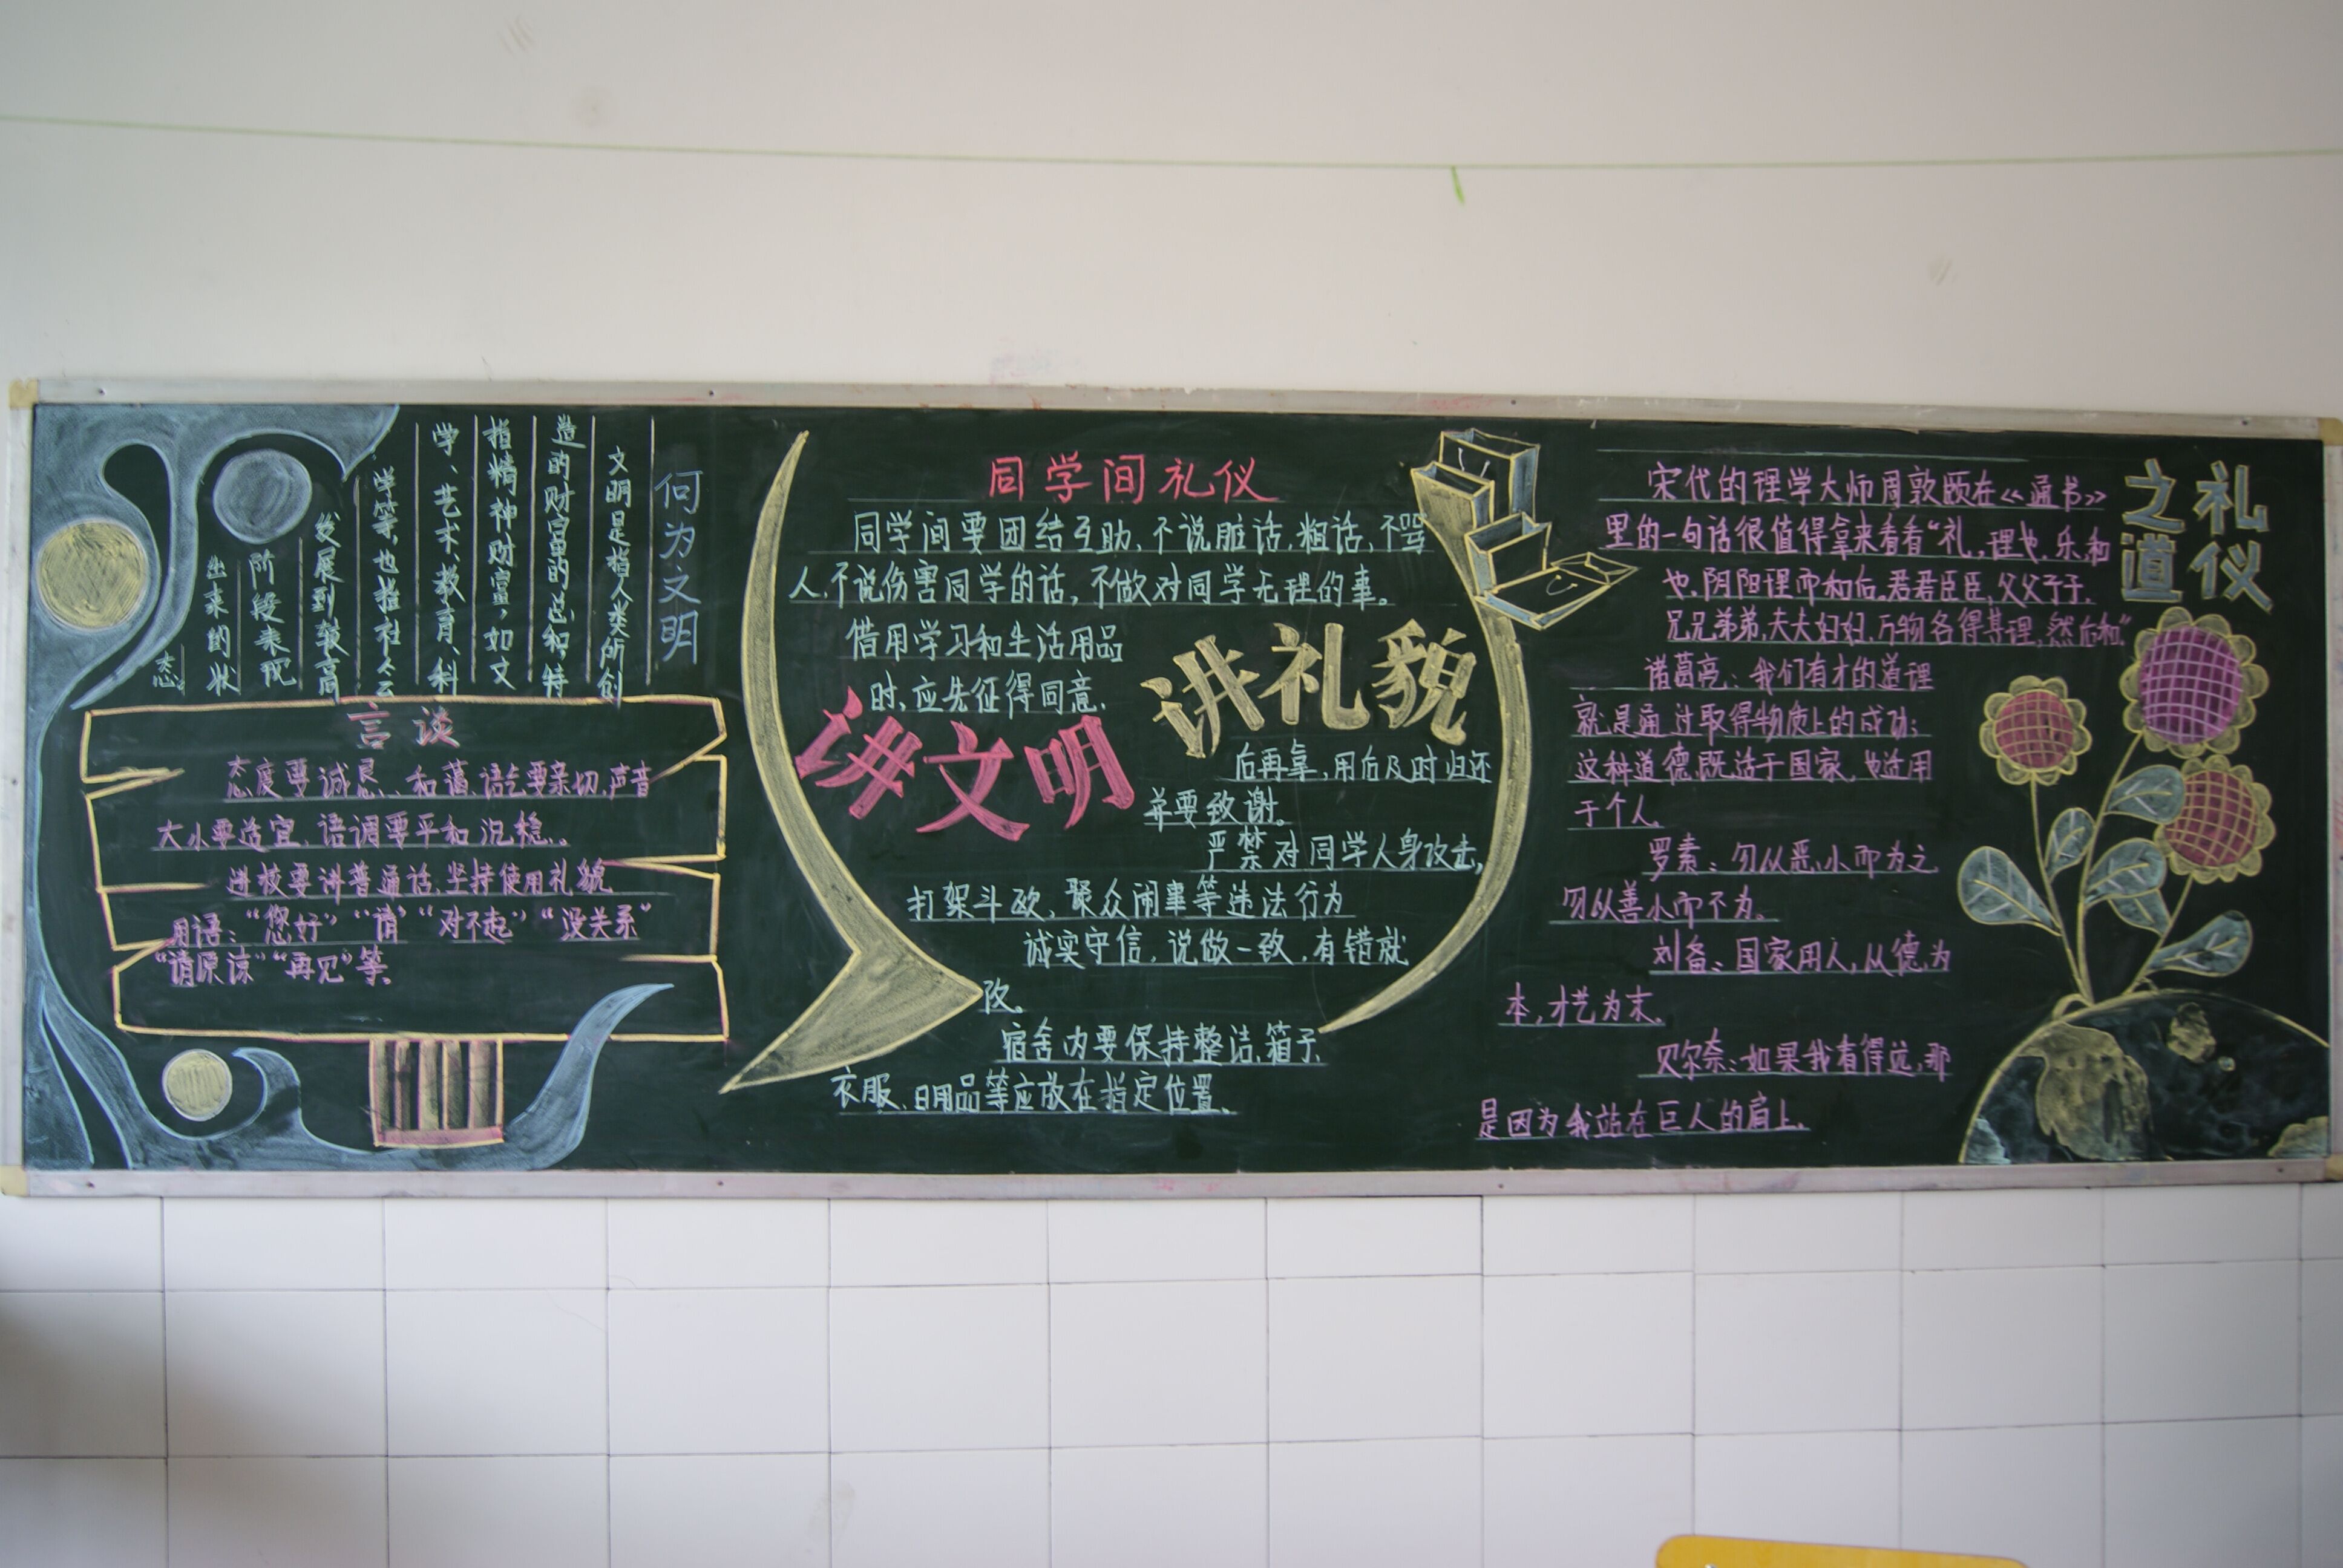 何为文明
文明是指人类所创
造的财富的总和，特
指精神财富，如文
学、艺术、教育、科
学等，也指社会
发展到较高
阶段表现
出来的状
态。
言谈
态度要诚恳、和蔼，语气要亲切，声音
大小要适宜，语调要平和沉稳。
进校要讲普通话，坚持使用礼貌
用语：“您好”“请”“对不起”“没关系”
“请原谅”“再见”等。
同学间礼仪
同学间要团结互助，不说脏话，粗话，不骂
人，不说伤害同学的话，不做对同学无理的事。
借用学习和生活用品
时，应先征得同意，
讲文明
讲礼貌
后再拿，用后及时归还
并要致谢。
严禁对同学人身攻击，
打架斗殴，聚众闹事等违法行为
诚实守信，说做一致，有错就
改。
宿舍内要保持整洁，箱子
衣服、日用品等应放在指定位置。
礼仪
之道
宋代的理学大师周敦颐在《通书》
里的一句话很值得拿来看看“礼，理也，乐，和
也，阴阳理而和后，君君臣臣，父父子子，
兄兄弟弟，夫夫妇妇，万物各得其理，然后和”
诸葛亮：我们有才的道理
就是通过取得物质上的成功；
这种道德，既适于国家，也适用
于个人。
罗素：勿以恶小而为之
勿以善小而不为。
刘备：国家用人，以德为
本，才艺为末。
贝尔奈：如果我看得远，那
是因为我站在巨人的肩上。